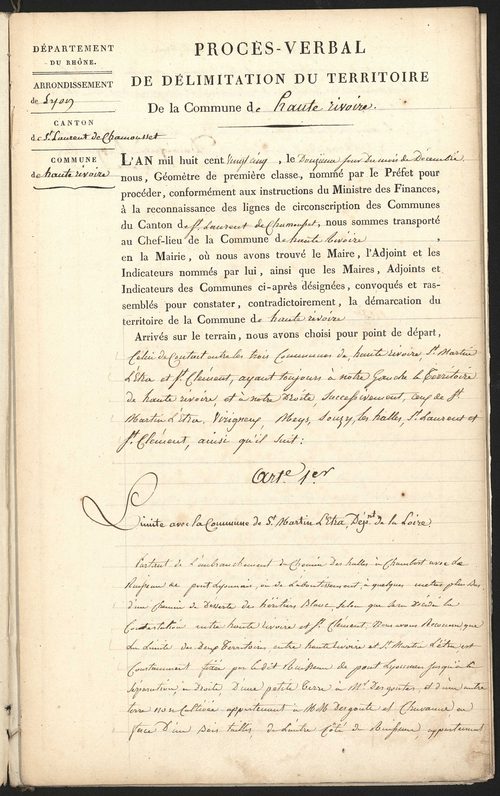 DÉPARTEMENT
DU RHÔNE.
ARRONDISSEMENT
de Lyon
CANTON
de St. Laurent de Chamousset
COMMUNE
de haute rivoire
PROCÈS-VERBAL
DE DÉLIMITATION DU TERRITOIRE
De la Commune de haute rivoire.
L'AN mil huit cent vingt cinq, le Douzieme jour du mois de Décembre
nous, Géomètre de première classe, nommé par le Préfet pour
procéder, conformément aux instructions du Ministre des Finances,
à la reconnaissance des lignes de circonscription des Communes
du Canton de St. Laurent de Chamousset, nous sommes transporté
au Chef-lieu de la Commune de haute Rivoire,
en la Mairie, où nous avons trouvé le Maire, l'Adjoint et les
Indicateurs nommés par lui, ainsi que les Maires, Adjoints et
Indicateurs des Communes ci-après désignées, convoqués et ras-
semblés pour constater, contradictoirement, la démarcation du
territoire de la Commune de haute rivoire
Arrivés sur le terrain, nous avons choisi pour point de départ,
Celui de Contact entre les trois Communes de haute rivoire St. Martin
L'Etra et St. Clément, ayant toujours à notre Gauche le Territoire
de haute rivoire, et à notre Droite successivement, ceux de St.
Martin L'Etra, Virigneux, Meys, Souzy, les halles, St. Laurent et
St. Clément, ainsi qu'il suit:
Art.e 1.er
Limite avec la Commune de St. Martin L'Etra, Dép.nt de la Loire
Partant de L'embranchement du Chemin des halles à Chambost avec Le
Ruisseau de pont Lyonnais, ou de à quelques metres plus bas
d'un Chemin de Desserte de héritiers Blanc, selon que sera Décidé la
Contestation entre haute rivoire et St. Clement, Nous avons Reconnu que
La Limite des Deux Territoires entre haute rivoire et St. Martin L'étra est
Constamment fixée par le dit Ruisseau de pont Lyonnais jusqu'à la
Séparation, à Droite, D'une petite Terre à Mr. Desgoutes, et d'une autre
terre non Cultivée appartenant à MM Desgoute et Chavanne en
face D'un Bois taillis de L'autre Côté du Ruisseau, appartenant